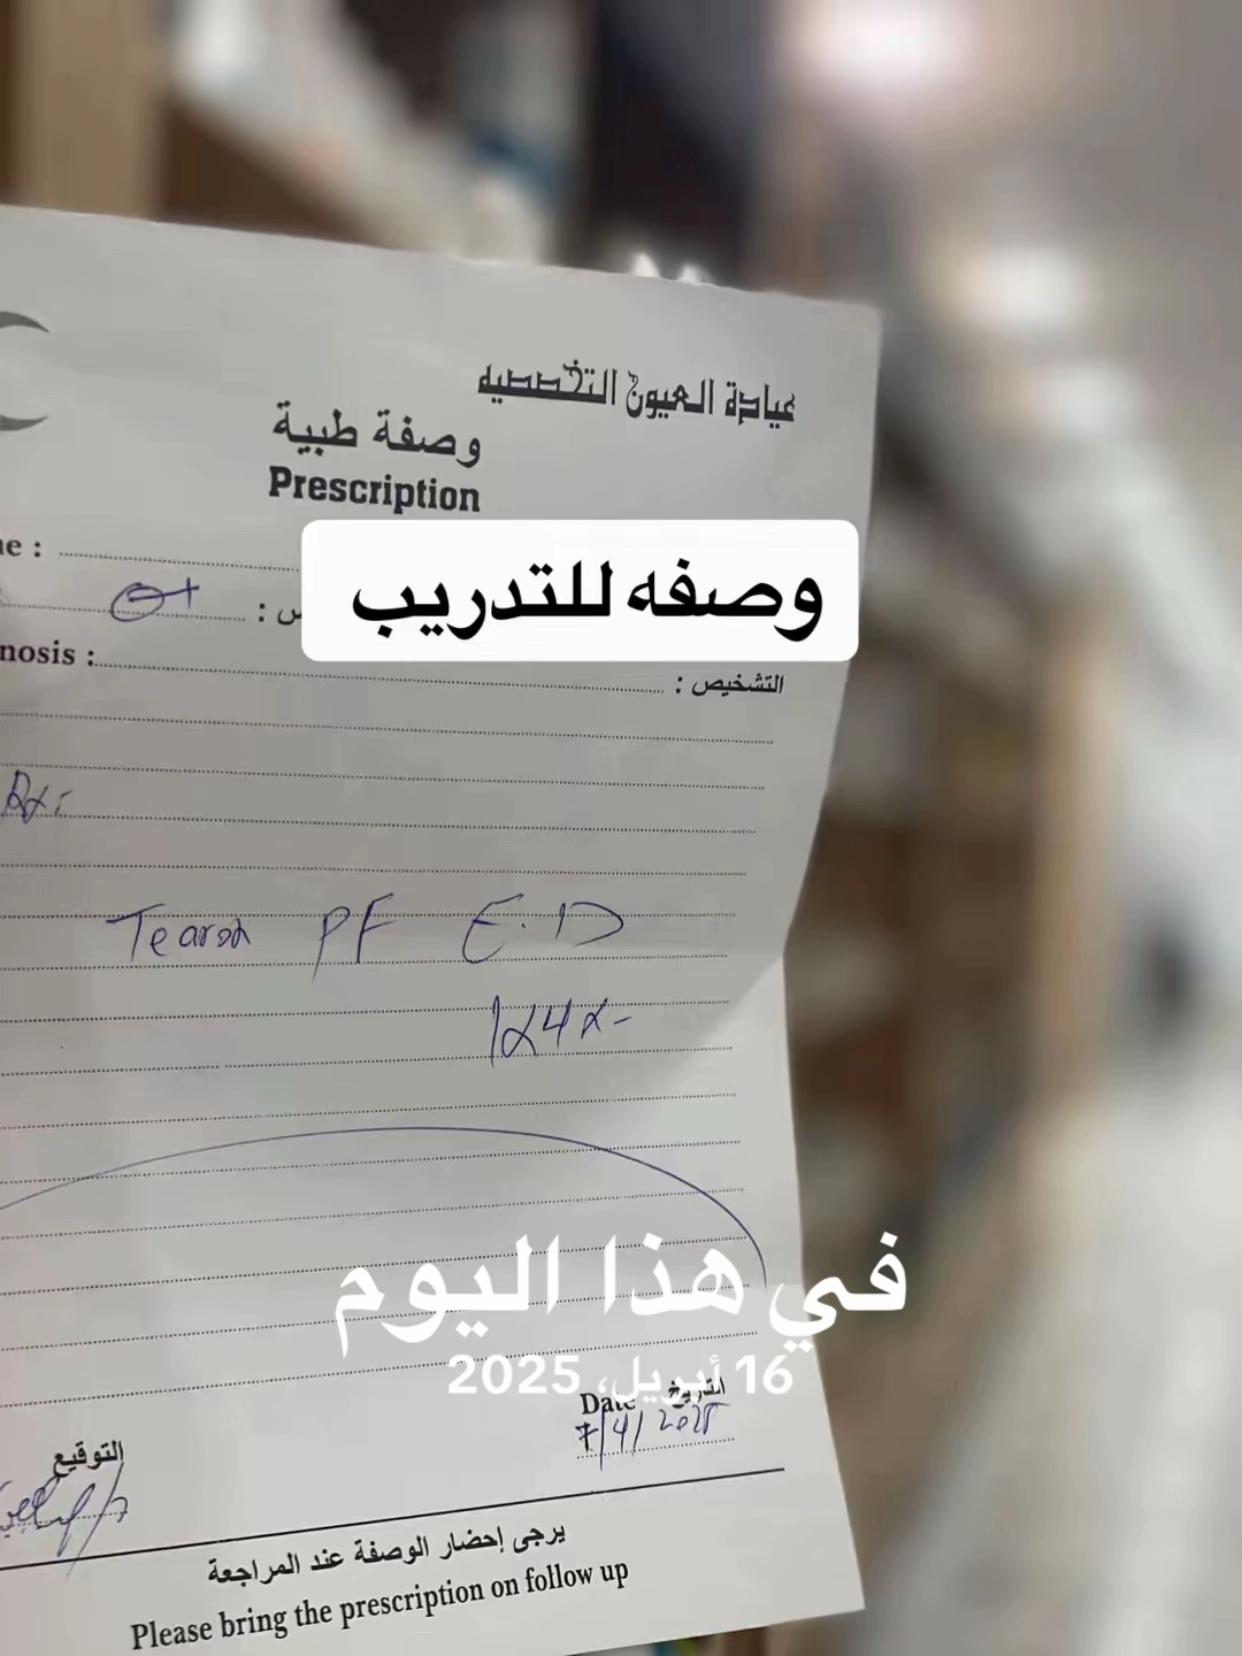 عيادة العيون التخصصيه
وصفة طبية
Prescription
وصفه للتدريب
التشخيص :
Rx:
PF E.D
1x4x-
في هذا اليوم
16 أبريل، 2025
Date التاريخ
7/4/2025
التوقيع
يرجى إحضار الوصفة عند المراجعة
Please bring the prescription on follow up